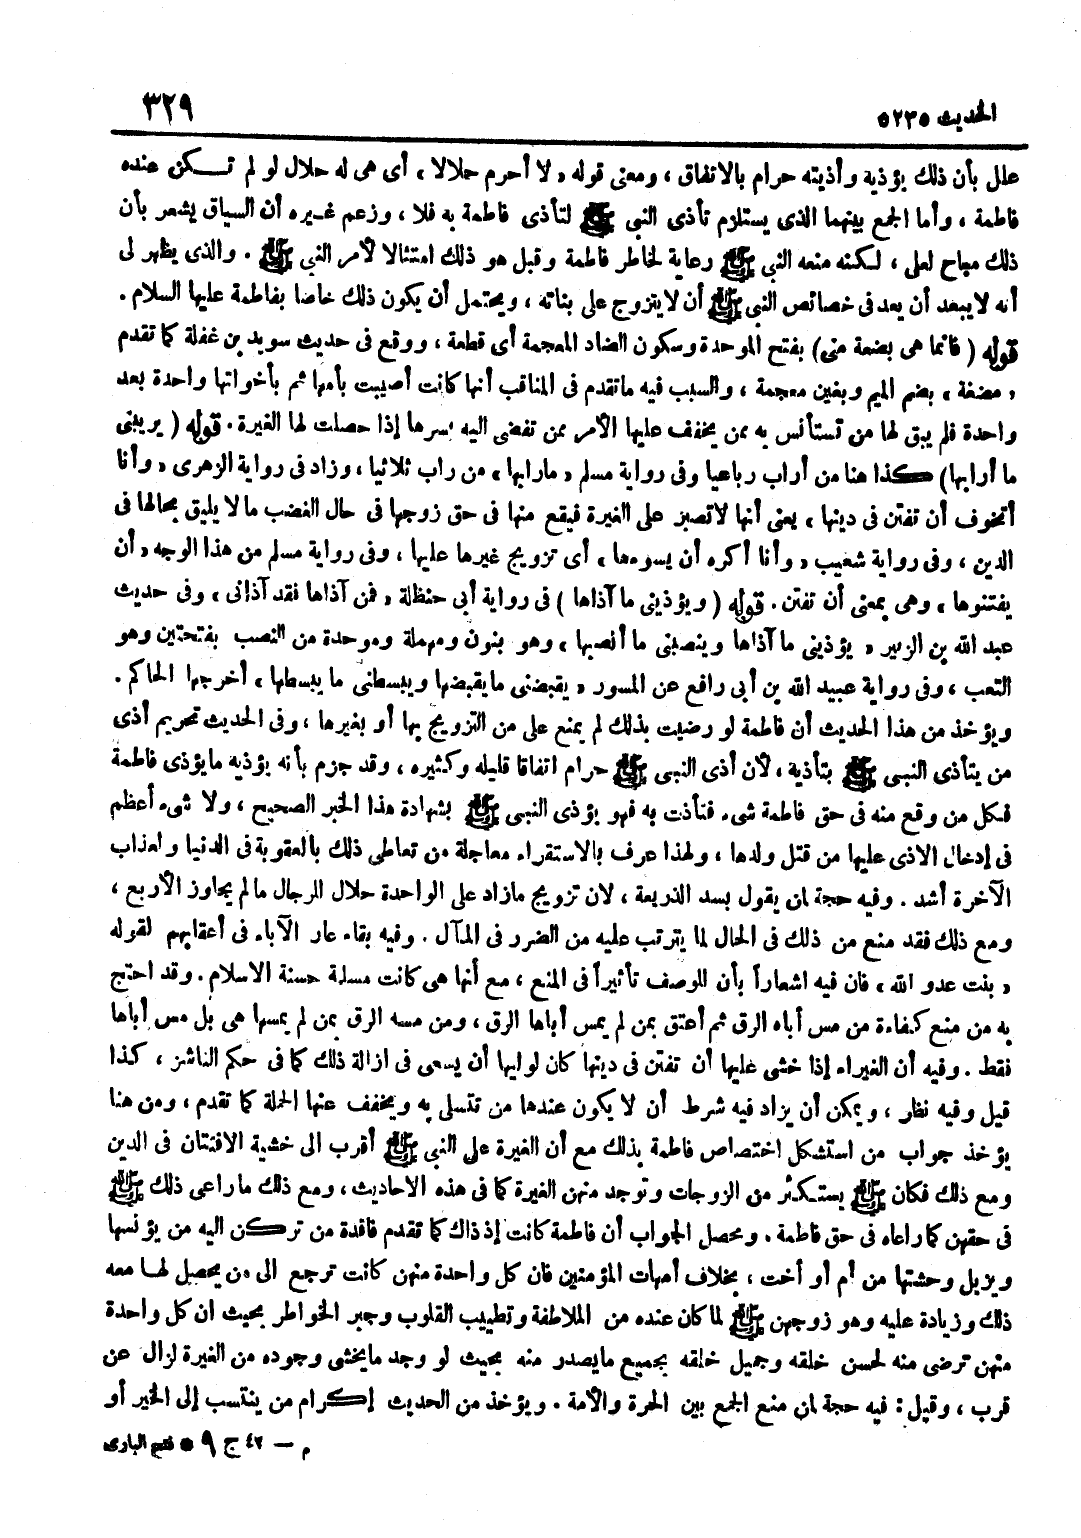 الحديث ٥٢٣٥
٣٢٩
علل بأن ذلك يؤذيه وأذيته حرام بالاتفاق ، ومعنى قوله « لا أحرم حلالا ، أى هى له حلال لو لم تـكن عنده
فاطمة ، وأما الجمع بينهما الذى يستلزم تأذى النبى ﷺ لتأذى فاطمة به فلا ، وزعم غيره أن السياق يشعر بأن
ذلك مباح لعلى ، لـكنه منعه النبى ﷺ رعاية لخاطر فاطمة وقبل هو ذلك امتثالا لأمر النبى ﷺ . والذى يظهر لى
أنه لايبعد أن يعد فى خصائص النبى ﷺ أن لايتزوج على بناته ، ويحتمل أن يكون ذلك خاصا بفاطمة عليها السلام .
قوله ( فانما هى بضعة منى) بفتح الموحدة وسكون الضاد المعجمة أى قطعة ، ووقع فى حديث سويد بن غفلة كما تقدم
« مضغة ، بضم الميم وبغين معجمة ، والسبب فيه ماتقدم فى المناقب أنها كانت أصيبت بأمها ثم بأخواتها واحدة بعد
واحدة فلم يبق لها من تستأنس به بمن يخفف عليها الأمر ممن تفضى اليه بسرها إذا حصلت لها الغيرة . قوله ( يريبنى
ما أرابها) كـذا هنا من أراب رباعيا وفى رواية مسلم « مارابها ، من راب ثلاثيا ، وزاد فى رواية الزهرى « وأنا
أتخوف أن تفتن فى دينها ، يعنى أنها لاتصبر على الغيرة فيقع منها فى حق زوجها فى حال الغضب ما لا يليق بحالها فى
الدين ، وفى رواية شعيب « وأنا أكره أن يسوءها ، أى تزويج غيرها عليها ، وفى رواية مسلم من هذا الوجه « أن
يفتنوها ، وهى بمعنى أن تفتن . قوله ( ويؤذينى ما آذاها ) فى رواية أبى حنظلة « فمن آذاها فقد آذانى ، وفى حديث
عبد الله بن الزبير « يؤذينى ما آذاها وينصبنى ما أنصبها ، وهو بنون ومهملة وموحدة من النصب بفتحتين وهو
التعب ، وفى رواية عبيد الله بن أبى رافع عن المسور « يقبضنى مايقبضها ويبسطنى ما يبسطها ، أخرجها الحاكم .
ويؤخذ من هذا الحديث أن فاطمة لو رضيت بذلك لم يمنع على من التزويج بها أو بغيرها ، وفى الحديث تحريم أذى
من يتأذى النبى ﷺ بتأذيه ، لأن أذى النبى ﷺ حرام اتفاقا قليله وكثيره ، وقد جزم بأنه يؤذيه مايؤذى فاطمة
فـكل من وقع منه فى حق فاطمة شىء فتأذت به فهو يؤذى النبى ﷺ بشهادة هذا الخبر الصحيح ، ولا شىء أعظم
فى إدخال الاذى عليها من قتل ولدها ، ولهذا عرف بالاستقراء معاجلة من تعاطى ذلك بالعقوبة فى الدنيا ولعذاب
الآخرة أشد . وفيه حجة لمن يقول بسد الذريعة ، لان تزويج مازاد على الواحدة حلال للرجال مالم يجاوز الأربع ،
ومع ذلك فقد منع من ذلك فى الحال لما يترتب عليه من الضرر فى المآل . وفيه بقاء عار الآباء فى أعقابهم لقوله
« بنت عدو الله ، فان فيه اشعاراً بأن للوصف تأثيراً فى المنع ، مع أنها هى كانت مسلمة حسنة الاسلام . وقد احتج
به من منع كـفاءة من مس أباه الرق ثم أعتق بمن لم يمس أباها الرق ، ومن مسه الرق بمن لم يمسها هى بل مس أباها
فقط . وفيه أن الغيراء إذا خشى عليها أن تفتن فى دينها كان لوليها أن يسعى فى ازالة ذلك كما فى حكم الناشز ، كذا
قيل وفيه نظر ، ويمكن أن يزاد فيه شرط أن لا يكون عندها من تتسلى به ويخفف عنها الحملة كما تقدم ، ومن هنا
يؤخذ جواب من استشكل اختصاص فاطمة بذلك مع أن الغيرة على النبى ﷺ أقرب الى خشية الافتتان فى الدين
ومع ذلك فكان ﷺ يستـكثر من الزوجات وتوجد منهن الغيرة كما فى هذه الاحاديث ، ومع ذلك ما راعى ذلك ﷺ
فى حقهن كما راعاه فى حق فاطمة . ومحصل الجواب أن فاطمة كانت إذ ذاك كما تقدم فاقدة من تركن اليه من يؤنسها
ويزيل وحشتها من أم أو أخت ، بخلاف أمهات المؤمنين فان كل واحدة منهن كانت ترجع الى من يحصل لها معه
ذلك وزيادة عليه وهو زوجهن ﷺ لما كان عنده من الملاطفة وتطييب القلوب وجبر الخواطر بحيث ان كل واحدة
منهن ترضى منه لحسن خلقه وجميل خلقه بجميع مايصدر منه بحيث لو وجد مايخشى وجوده من الغيرة لزال عن
قرب ، وقيل : فيه حجة لمن منع الجمع بين الحرة والأمة . ويؤخذ من الحديث إكرام من ينتسب إلى الخير أو
م — ٤٢ ج ٩ * فتح البارى